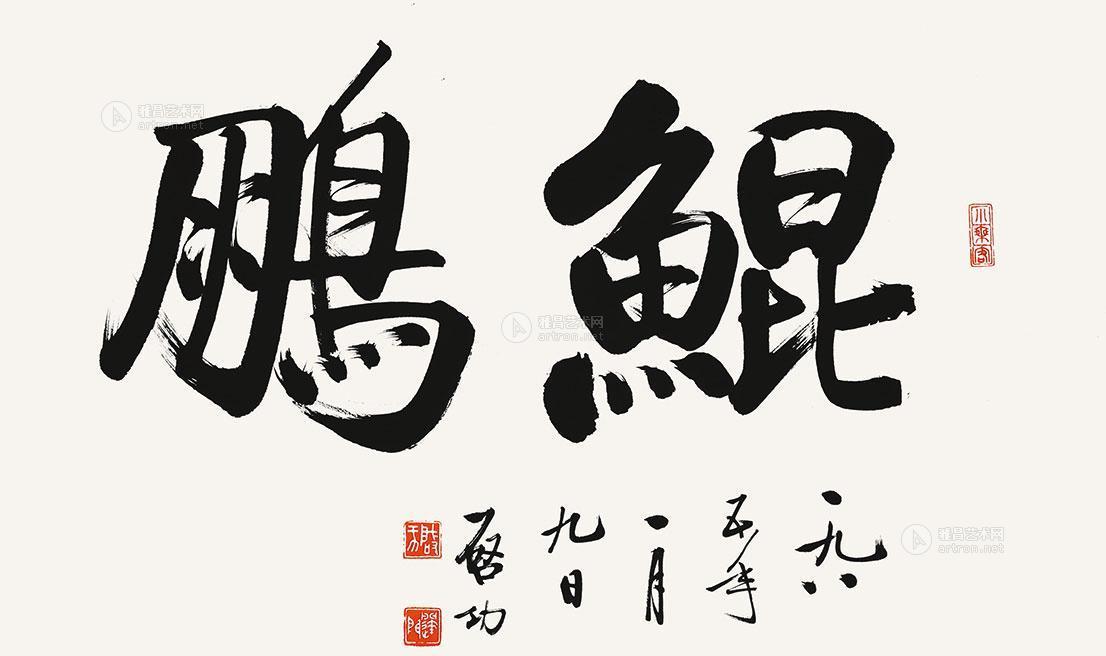 鯤鵬
一九八
五年
一月
九日
啓功
小乘客
雅昌艺术网
artron.net
雅昌艺术网
artron.net
雅昌艺术网
artron.net